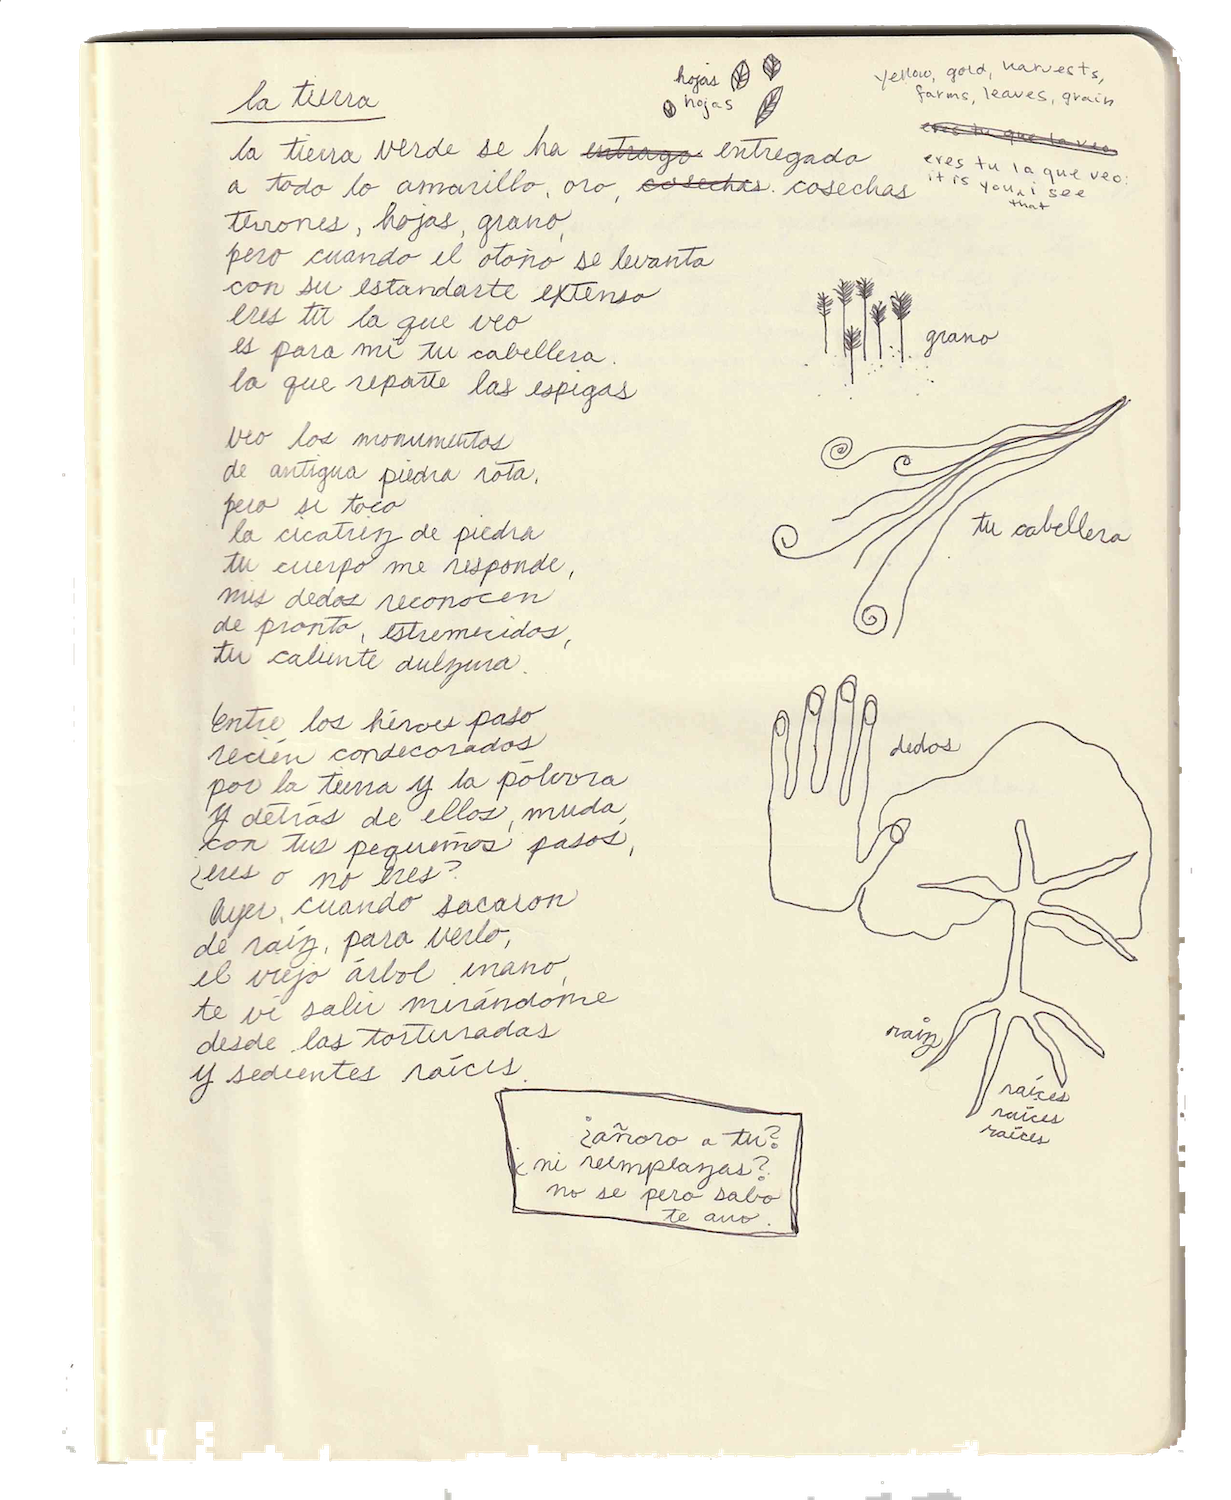 la tierra
hojas
hojas
yellow, gold, harvests,
farms, leaves, grain
eres tu que la veo
eres tu la que veo:
it is you, i see
that
la tierra verde se ha entrago entregado
a todo lo amarillo, oro, cosechas. cosechas
terrones, hojas, grano,
pero cuando el otoño se levanta
con su estandarte extenso
eres tu la que veo
es para mí tu cabellera.
la que reparte las espigas
grano
veo los monumentos
de antigua piedra rota,
pero si toco
la cicatriz de piedra
tu cuerpo me responde,
mis dedos reconocen
de pronto, estremecidos,
tu caliente dulzura.
tu cabellera
Entre los héroes paso
recién condecorados
por la tierra y la pólvora
y detrás de ellos, muda,
con tus pequeños pasos,
¿eres o no eres?
Ayer, cuando sacaron
de raíz, para verlo,
el viejo árbol enano,
te vi salir mirándome
desde las torturadas
y sedientes raíces.
dedos
raiz
raíces
raíces
raíces
¿añoro a tu?
¿ni reemplazas?
no se pero sabo
te amo.